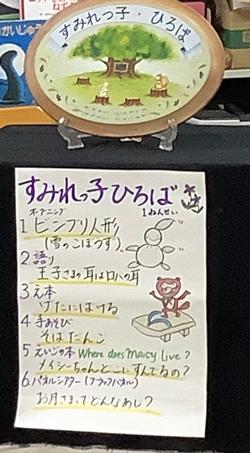 すみれっ子・ひろば
すみれっ子ひろば
オープニング
1ねんせい
1 ビンブリ人形
(雪のこぼうず)
2 語り
王子さまの耳はロバの耳
3 え本
げたにばける
4 手あそび
そばだんご
5 えいごの本 Where does Maisy Live?
メイシーちゃんどこにすんでるの?
6 パネルシアター(ブラックパネル)
お月さまってどんなあじ?